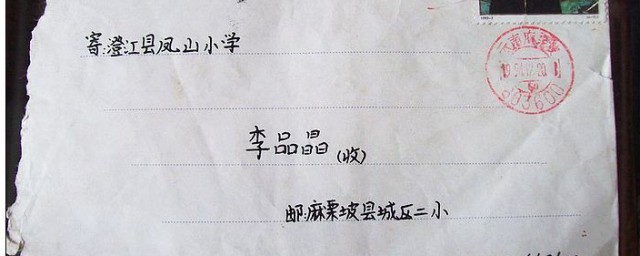 寄:澄江县凤山小学
李品晶(收)
邮:麻栗坡县城区二小
663600